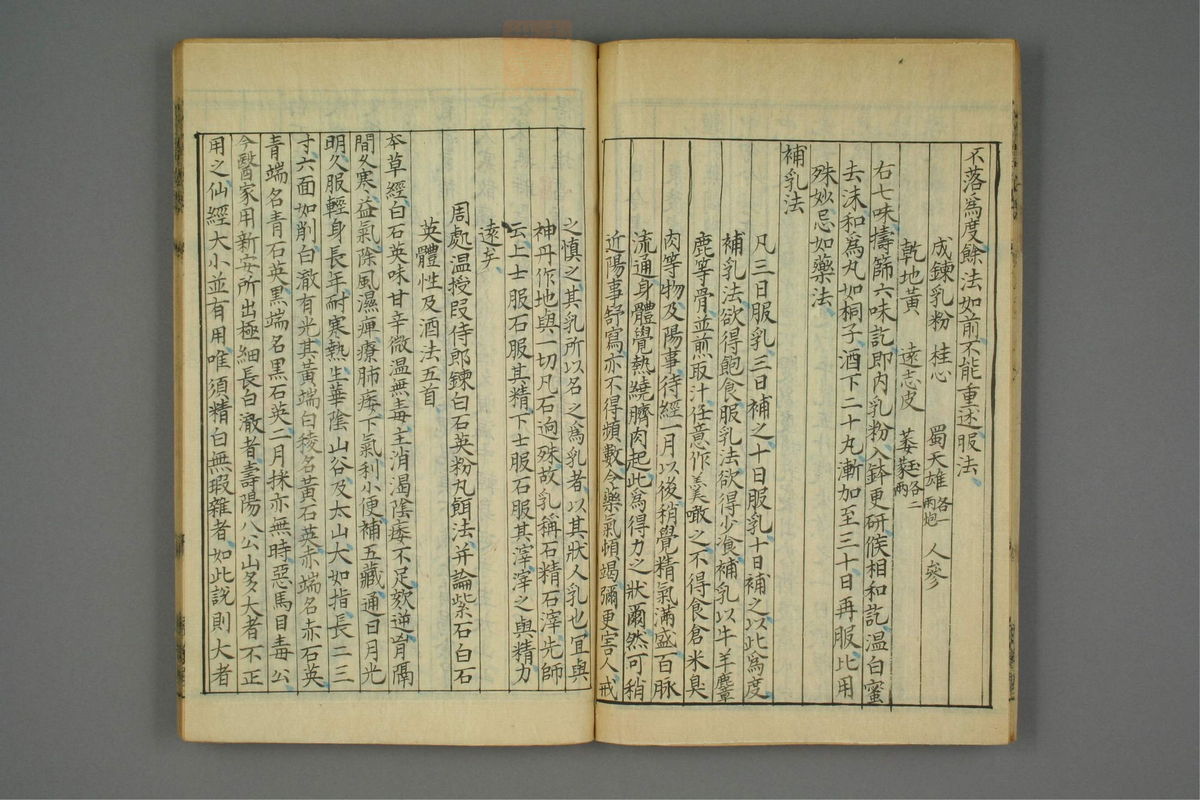 不落為度餘法如前不能重述服法
成鍊乳粉 桂心 蜀天雄各一兩炮 人參
乾地黃 遠志皮 萎蕤各二兩
右七味擣篩六味訖即內乳粉入鉢更研候相和訖溫白蜜
去沫和為丸如桐子酒下二十丸漸加至三十日再服此用
殊妙忌如藥法
補乳法
凡三日服乳三日補之十日服乳十日補之以此為度
補乳法欲得飽食服乳法欲得少食補乳以牛羊麞
鹿等骨並煎取汁任意作羹噉之不得食倉米臭
肉等物及陽事待經一月以後稍覺精氣滿盛百脉
流通身體覺熱繞臍肉起此為得力之狀爾然可稍
近陽事舒寫亦不得頻數令藥氣頓竭彌更害人戒
之慎之其乳所以名之為乳者以其狀人乳也宜與
神丹作地與一切凡石逈殊故乳稱石精石滓先師
云上士服石服其精下士服石服其滓滓之與精力
遠矣
周處溫授叚侍郎鍊白石英粉丸餌法并論紫石白石
英體性及酒法五首
本草經白石英味甘辛微溫無毒主消渴陰痿不足欬逆胷膈
間久寒益氣除風濕痺療肺痿下氣利小便補五藏通日月光
明久服輕身長年耐寒熱生華陰山谷及太山大如指長二三
寸六面如削白澈有光其黃端白稜名黃石英赤端名赤石英
青端名青石英黑端名黑石英二月採亦無時惡馬目毒公
今醫家用新安所出極細長白澈者壽陽八公山多大者不正
用之仙經大小並有用唯須精白無瑕雜者如此說則大者